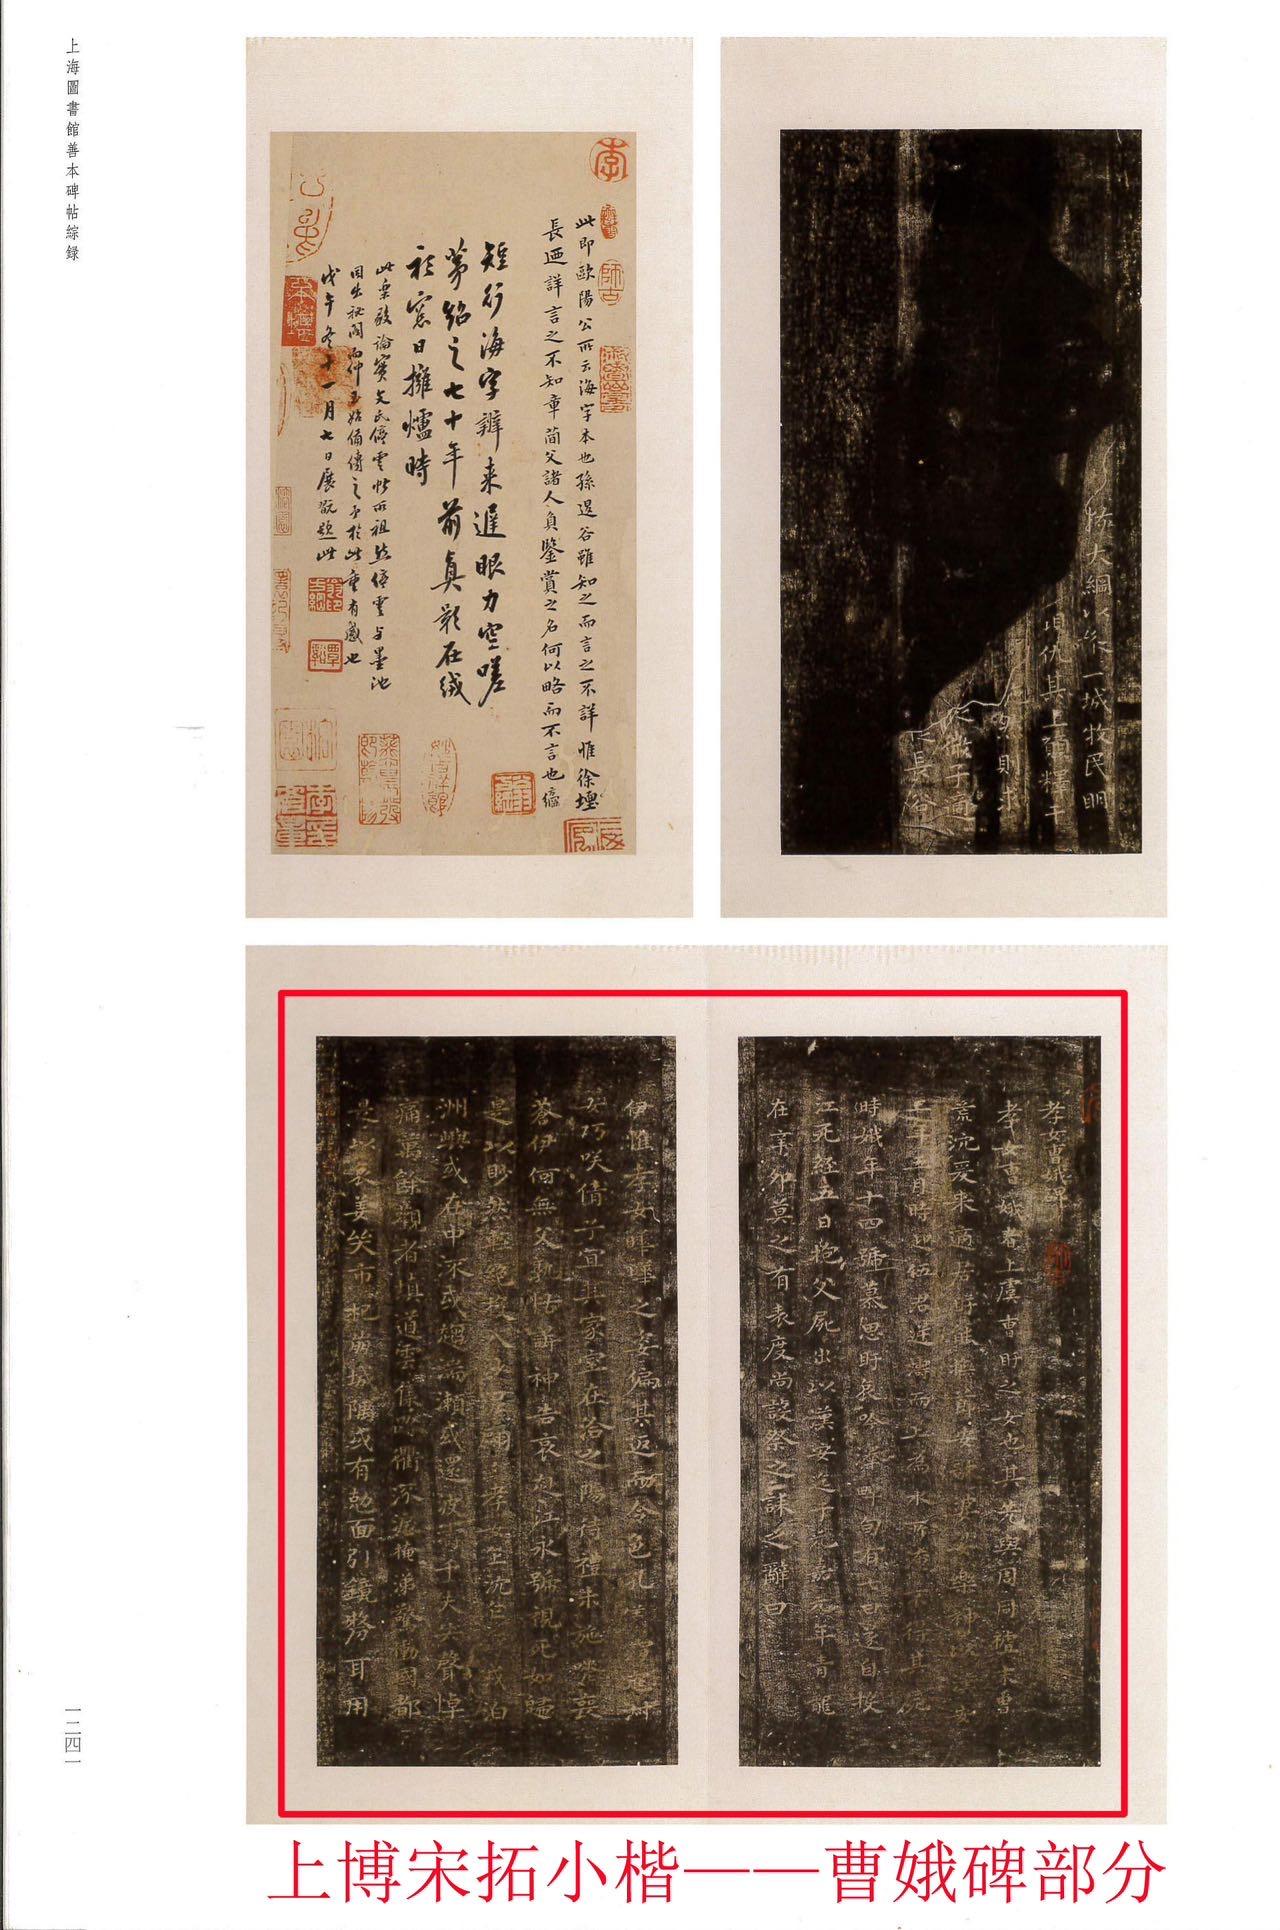 上海圖書館善本碑帖綜録
大綱以後一城牧民明
仇其上願釋干
則求
微子適
長俗
此即歐陽公所云海字本也孫退谷雖知之而言之不詳惟徐壇
長迺詳言之不知章簡父諸人負鑒賞之名何以略而不言也
短行海字辨来遲眼力空嗟
茅紹之七十年前真影在絨
窓日擁爐時
此樂毅論實文氏停雲帖所祖然停雲与墨池
同出秘閣而仲玉始備之於此重有感也
戊午冬十一月七日展翫題此
孝女曹娥碑
孝女曹娥者上虞曹盱之女也其先與周同禮末胄
荒沈爰来適居盱能撫節安歌婆娑樂神以漢安
二年五月時迎伍君逆濤而上為水所淹不得其屍
時娥年十四號慕思盱哀吟澤畔旬有七日遂自投
江死經五日抱父屍出以漢安迄于元嘉元年青龍
在辛卯莫之有表度尚設祭之誄之辭曰
伊惟孝女曄曄之姿偏其返而令色孔儀窈窕淑
女巧咲倩兮宜其家室在洽之陽待禮未施嗟喪
蒼伊何無父孰怙訴神告哀赴江永號視死如歸
是以眇然輕絕投入沙泥翩翩孝女乍沈乍浮或泊
洲嶼或在中流或趨湍瀬或還波濤千夫失聲悼
痛萬餘觀者填道雲集路衢流淚掩涕驚慟國都
是以哀姜哭市杞崩城隅或有勀面引鏡剺耳用
一二四一
上博宋拓小楷——曹娥碑部分